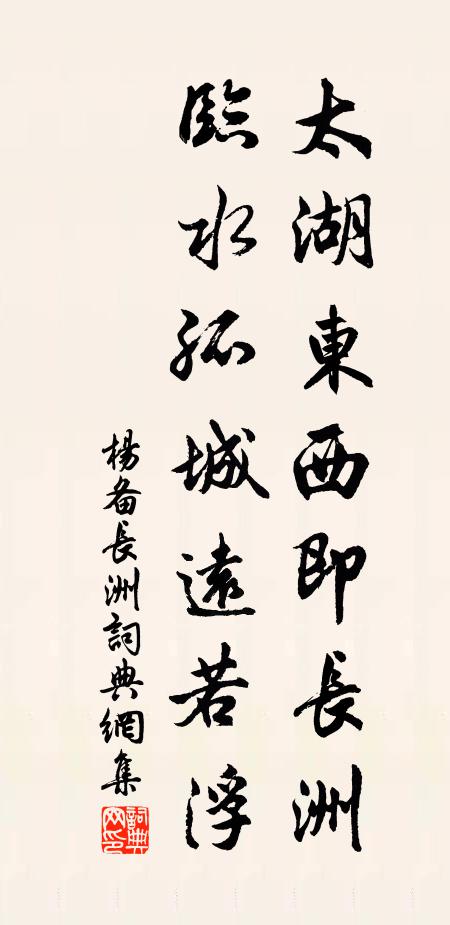 太湖東西即長洲
臨水孤城遠若浮
楊备長洲詞典網集
詞典網印